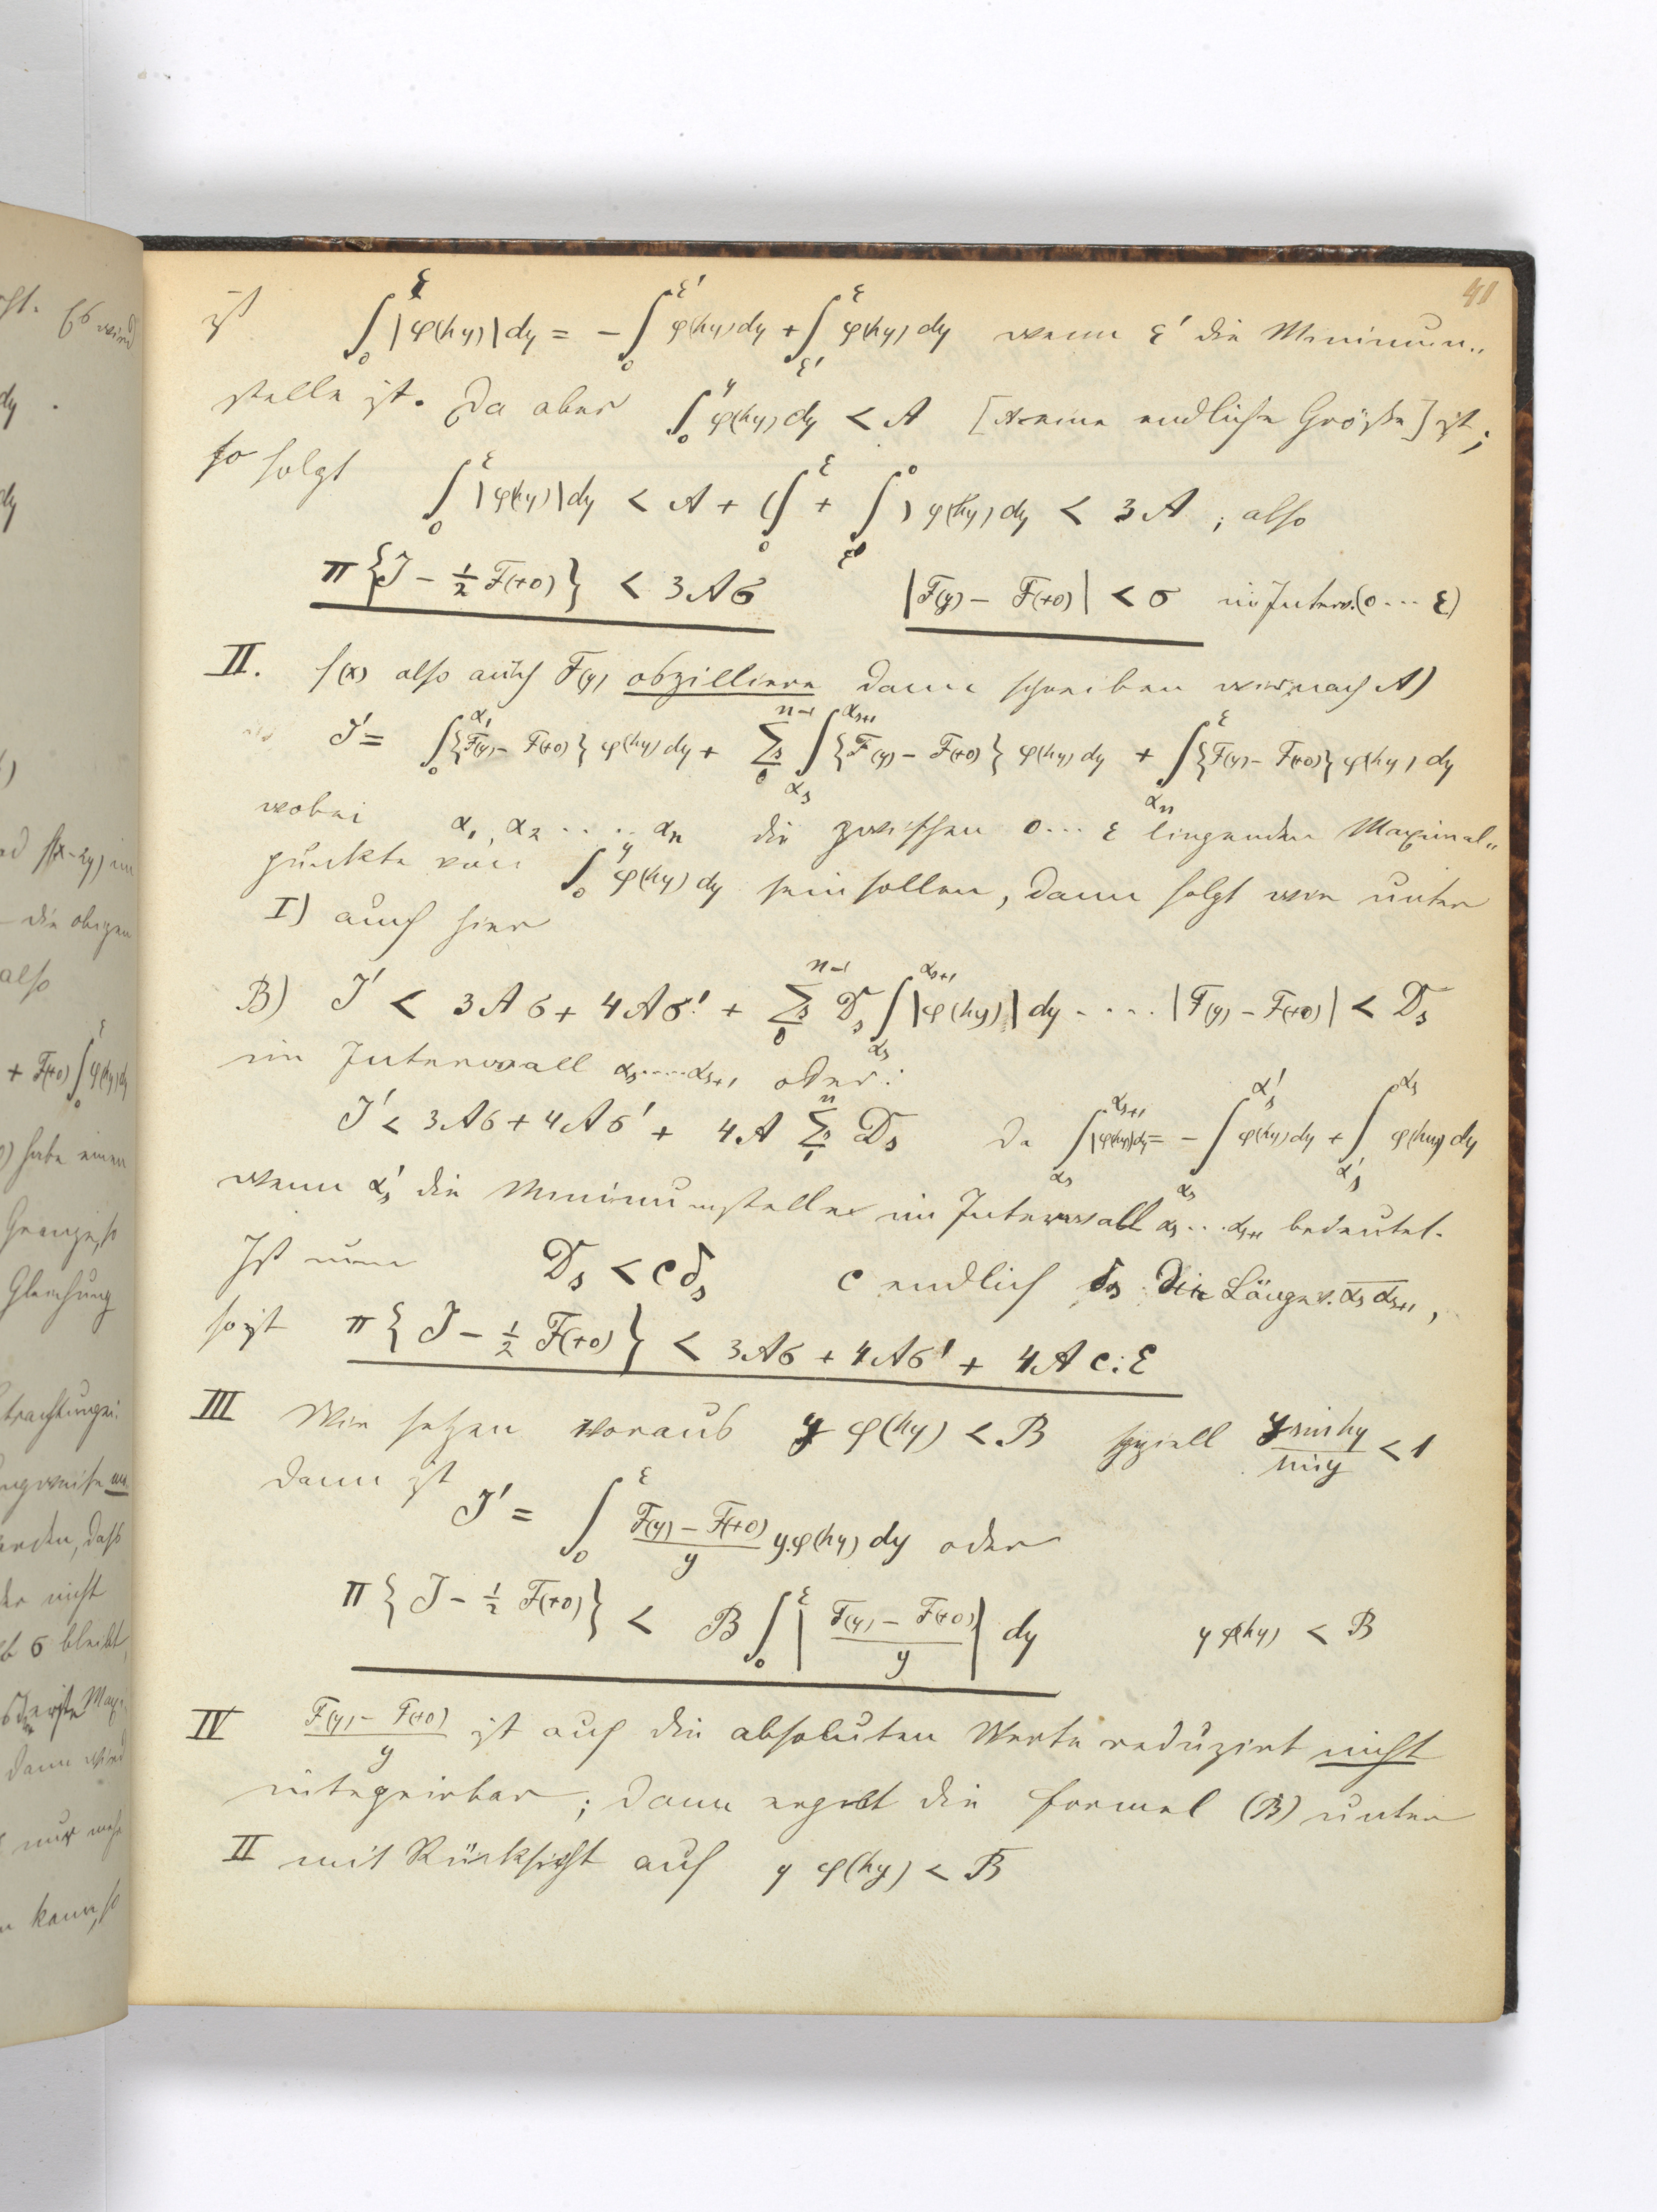 41
ist ∫₀^ε |φ(hy)| dy = − ∫₀^ε' φ(hy) dy + ∫_ε'^ε φ(hy) dy wenn ε' die Minimum„
stelle ist. Da aber ∫₀^y φ(hy) dy < A [A eine endliche Größe] ist;
so folgt ∫₀^ε |φ(hy)| dy < A + (∫₀^ε + ∫_ε'^0) φ(hy) dy < 3A ; also
π{J − ½ F(+0)} < 3Aσ |F(y) − F(+0)| < σ im Interv.(0 ... ε)
II. f(x) also auch F(y) obzilliere dann schreiben wir nach A)
J' = ∫₀^α₁ {F(y) − F(+0)} φ(hy) dy + Σs₀^n−1 ∫_αs^αs+1 {F(y) − F(+0)} φ(hy) dy + ∫_αn^ε {F(y) − F(+0)} φ(hy) dy
wobei α₁, α₂ ..... αn die zwischen 0 ... ε liegenden Maximal„
punkte von ∫₀^y φ(hy) dy sein sollen, dann folgt wie unter
I) auch hier
B) J' < 3Aσ + 4Aσ' + Σs₀^n−1 Ds ∫_αs^αs+1 |φ(hy)| dy ..... |F(y) − F(+0)| < Ds
im Intervall αs.....αs+1 oder:
J' < 3Aσ + 4Aσ' + 4A Σs₁^n Ds da ∫_αs^αs+1 |φ(hy)| dy = − ∫_αs^α's φ(hy) dy + ∫_α's^αs φ(hy) dy
wenn α's die Minimumstelle im Intervall αs...αs+1 bedeutet.
Ist nun Ds < c δs c endlich δs die Länge v. αs αs+1,
so ist π{J − ½ F(+0)} < 3Aσ + 4Aσ' + 4A c.ε
III Wir setzen voraus y φ(hy) < B speziell y sin hy / sin y < 1
dann ist J' = ∫₀^ε (F(y) − F(+0))/y y.φ(hy) dy oder
π{J − ½ F(+0)} < B ∫₀^ε |(F(y) − F(+0))/y| dy y φ(hy) < B
IV (F(y) − F(+0))/y ist auf die absoluten Werte reduzirt nicht
integrirbar; dann ergibt die Formel (B) unter
II mit Rücksicht auf y φ(hy) < B